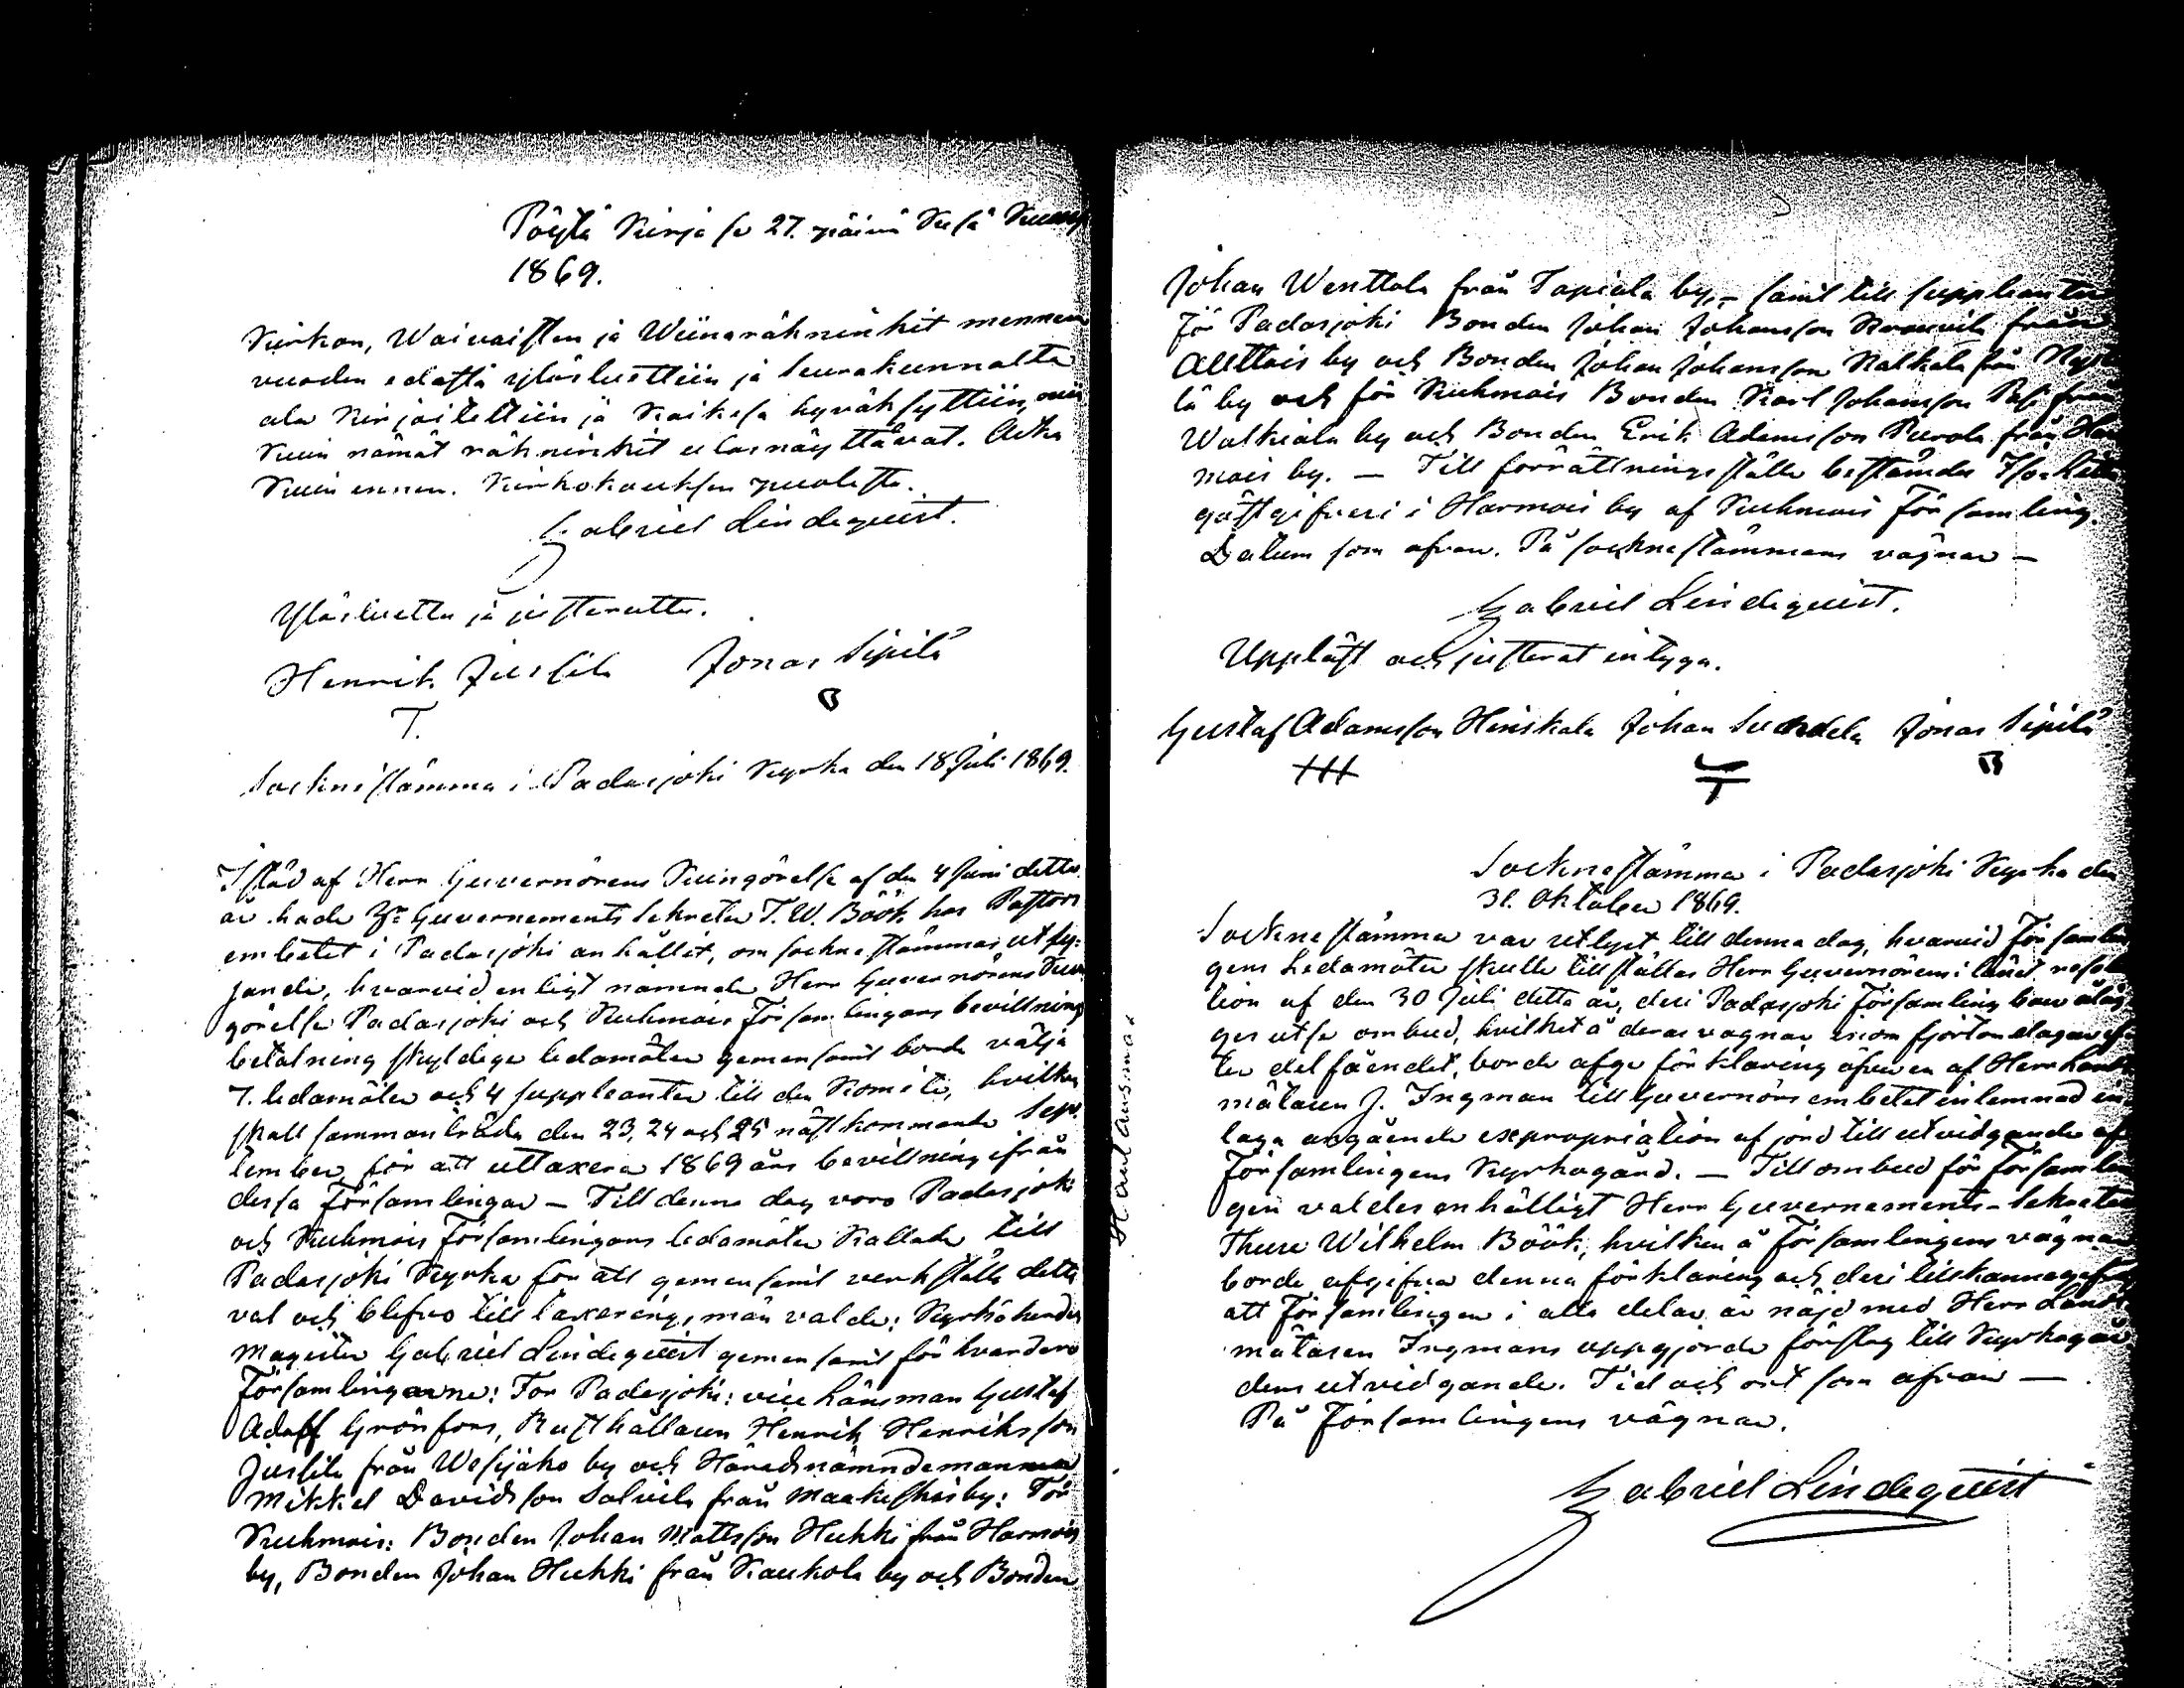 Pöytä Kirja se 27. päivä Kesä Kuussa
1869.
Kirkon, Waivaisten ja Wiinarähninkit mennen
vuoden edästä ylösluettiin ja Seurakunnalta
ala kirjoitettiin ja kaikesa hyväksyttiin, niin
kuin nämät rähninkit ulosnäyttävät. Aika
kuin ennen. Kirkokouksen puolesta.
Gabriel Lindequist.
Ylösluettu ja justerattu.
Henrik Jussila Jonas Sipilä
T. B
Sockne stämma i Padasjoki Kyrka den 18 Juli 1869.
I stöd af Herr Guvernörens Kungörelse af den 4 Juni detta
år hade Hr Guvernements Sekreter T. W. Böök hos Pastors
embetet i Padasjoki anhållit, om sockne stämmas utly-
sande, hvarvid enligt nämnde Herr Guvernörens Kun
görelse Padasjoki och Kuhmois Församlingars bevillning
betalning skyldige ledamöter gemensamt borde välja
7. ledamöter och 4 suppleanter till den Komite, hvilken
skall sammanträda den 23, 24 och 25 nästkommande Sep-
tember för att uttaxera 1869 års bevillning ifrån
dessa Församlingar — Till denna dag voro Padasjoki
och Kuhmois Församlingars ledamöter Kallade till
Padasjoki Kyrka för att gemensamt verkställa detta
val och blefvo till taxerings män valde: Kyrkoherden
Magister Gabriel Lindequist gemensamt för hvardera
Församlingarne: För Padasjoki: vice Länsman Gustaf
Adolf Grönfors, Rusthållaren Henrik Henriksson
Jussila från Wesijako by och Häradsnämndemannen
Mikkel Davidsson Solvila från Maakeskis by: För
Kuhmois: Bonden Johan Mattsson Hukki från Harmois
by, Bonden Johan Hukki från Kaukola by och Bonden
H. aulausmaa
Johan Wenttola från Tapiala by, — samt till suppleanter
för Padasjoki Bonden Johan Johansson från
Auttois by och Bonden Johan Johansson Kalkala från Nys
lä by och för Kuhmois Bonden Karl Johansson från
Walkiala by och Bonden Erik Adamsson Purola från Har
mois by. — Till förrättningsställe bestämdes
gästgifveri i Harmois by af Kuhmois Församling.
Datum som ofvan. På socknestämmans vägnar —
Gabriel Lindequist.
Uppläst och justerat intyga.
Gustaf Adamsson Hinskala Johan Suurdela Jonas Sipilä
B
Sockne stämma i Padasjoki Kyrka den
31. Oktober 1869.
Sockne stämma var utlyst till denna dag, hvarvid Församlin
gens Ledamöter skulle tillställas Herr Guvernörens i länet resolu
tion af den 30 Juli detta år, deri Padasjoki Församling bar åläg-
ges utse ombud, hvilket å deras vägnar inom fjorton dagar ef-
ter delfåendet, borde afge förklaring öfver en af Herr Landt
mätaren J. Ingman till Guvernörs embetet inlemnad in
laga angående expropriation af jord till utvidgande af
Församlingens Kyrkogård. — Till ombud för Församlin
gen valdes enhälligt Herr Guvernements-Sekreter
Thure Wilhelm Böök, hvilken å Församlingens vägnar
borde afgifva denna förklaring och deri tillkännagifva
att Församlingen i alla delar är nöjd med Herr Landt
mätaren Ingmans uppgjorde förslag till Kyrkogår
dens utvidgande. Tid och ort som ofvan —
På Församlingens vägnar.
Gabriel Lindequist